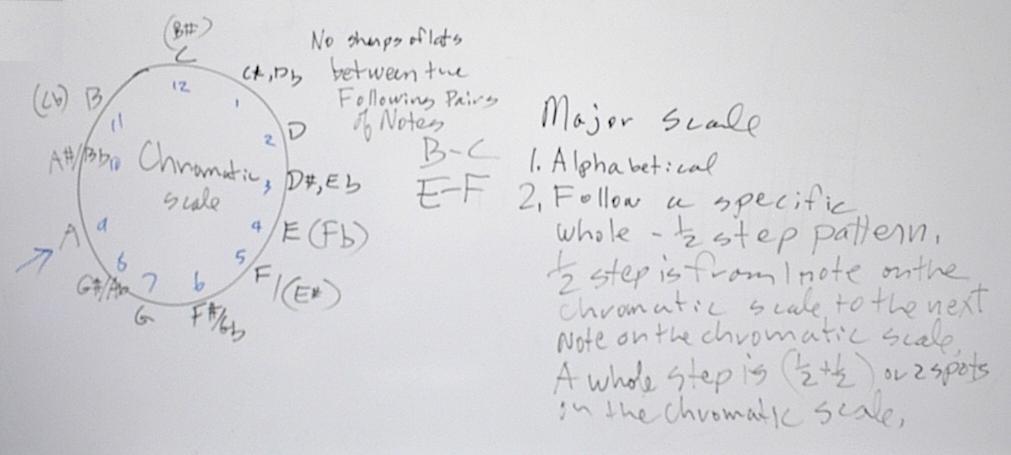 (B#)
C
C#, Db
D
D#, Eb
E (Fb)
F/(E#)
F#/Gb
G
G#/Ab
A
A#/Bb
(Cb) B
12
1
2
3
4
5
6
7
8
9
10
11
Chromatic
scale
No sharps oflats
between the
Following Pairs
of Notes
B-C
E-F
Major scale
1. Alphabetical
2, Follow a specific
whole - 1/2 step pattern,
1/2 step is from 1 note on the
chromatic scale to the next
Note on the chromatic scale,
A whole step is (1/2+1/2) or 2 spots
on the chromatic scale,